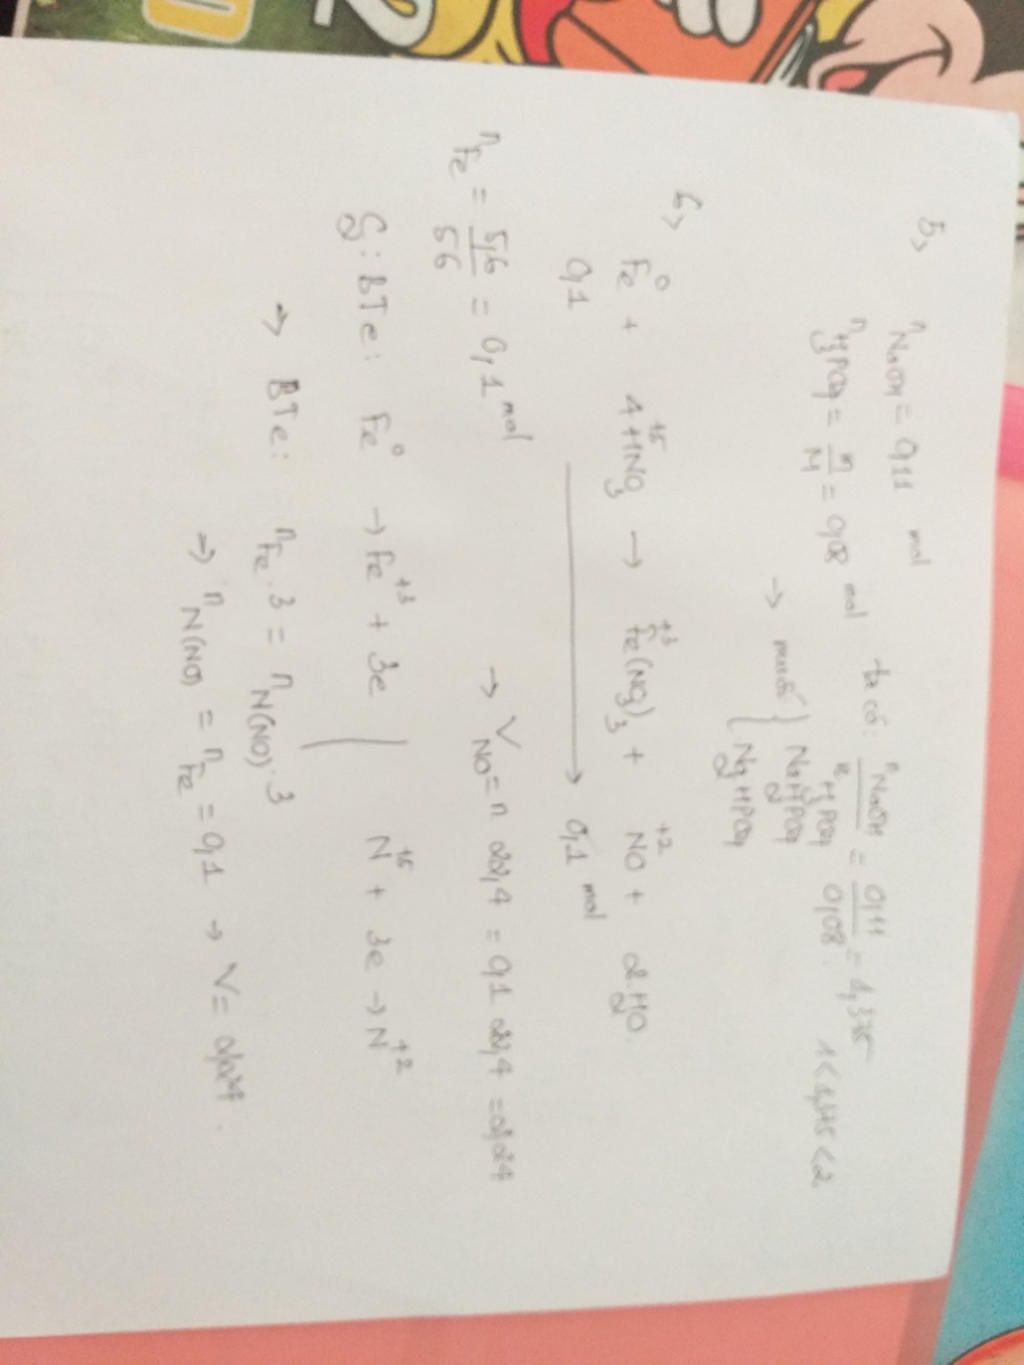 5,
nNaOH = 0,11 mol
nH3PO4 = m/M = 0,08 mol ta có: nNaOH/nH3PO4 = 0,11/0,08 = 1,375 1<1,375<2
→ muối { NaH2PO4
{ Na2HPO4
6,
Fe⁰ + 4HN⁺⁵O3 → Fe⁺³(NO3)3 + N⁺²O + 2H2O.
0,1 → 0,1 mol
nFe = 5,6/56 = 0,1 mol → VNO = n 22,4 = 0,1 22,4 = 2,24
C2: BTe: Fe⁰ → Fe⁺³ + 3e | N⁺⁵ + 3e → N⁺²
→ BTe: nFe.3 = nN(NO).3
→ nN(NO) = nFe = 0,1 → V = 2,24.